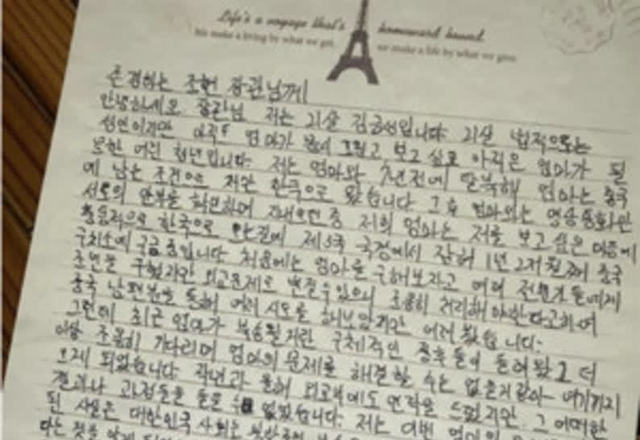 Life's a voyage that's homeward bound.
We make a living by what we get, we make a life by what we give.
존경하는 조현 장관님께
안녕하세요 장관님 저는 21살 김금성입니다. 21살 법적으로는
성인이지만 아직은 엄마가 많이 그립고, 보고 싶은 아직은 엄마가 필
못한 어린 청년입니다. 저는 엄마와 7년전에 탈북해 엄마는 중국
에 남는 조건으로 저만 한국으로 왔습니다. 그 후 엄마와는 영상통화만
서로의 안부를 확인하며 지내오던 중 저희 엄마는 저를 보고 싶은 마음에
한국으로 오는길에 제3국 국경에서 잡혀 1년 2개월째 중국
구치소에 구금 중입니다 처음에는 엄마를 구해보자고 여러 전문가들에게
조언을 구했지만 외교문제로 번질수있으니 조용히 처리해야한다고하여
중국 남편분을 통해 여러 시도를 해보았지만 어려웠습니다.
그런데 최근 엄마가 북송될거란 구체적인 정후들이 들려왔고 더
이상 조용히 기다리며 엄마의 문제를 해결할 수는 없을거같아 여기까지
오게 되었습니다 작년과 올해 외교부에도 연락을 드렸지만 그 어떠한
결과나 과정들을 들을 수 없었습니다. 저는 이번
된 사실은 대한민국 사회는
다는 것을 알게